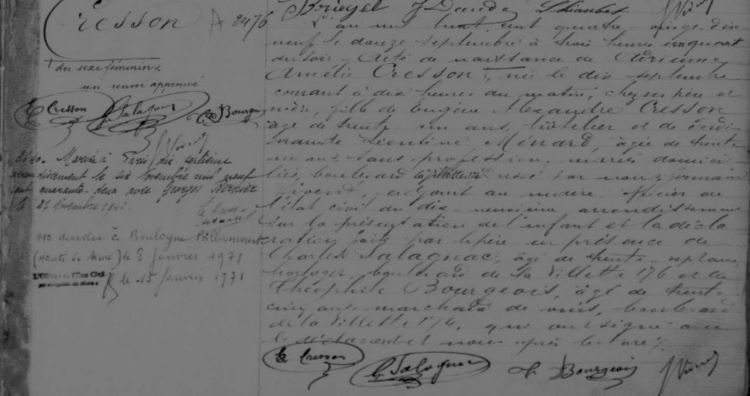 Cresson
2476
du sexe féminin
un renvoi approuvé
E Cresson
C. Salagnac
Th Bourgeois
Marié à Paris dix septième
arrondissement le six novembre mil neuf
cent quarante deux avec Georges
le 27 novembre 1942
décédée à Boulogne Billancourt
(Hauts de Seine) le 3 février 1971
le 15 février 1971
L'an mil huit cent quatre vingt dix
neuf le douze septembre à trois heures un quart
du soir, Acte de naissance de Adrienne
Amélie Cresson, née le dix septembre
courant à dix heures du matin, chez ses père et
mère, fille de Eugène Alexandre Cresson
âgé de trente un ans, hôtelier et de
Léontine Ménard, âgée de trente
un ans, sans profession, mariés domici
liés, boulevard de la Villette 
par nous
adjoint au maire, officier de
l'état civil du dix neuvième arrondissement
sur la présentation de l'enfant et la décla
ration faite par le père en présence de
Charles Salagnac, âgé de trente sept ans
horloger, boulevard de la Villette 176 et de
Théophile Bourgeois, âgé de trente
cinq ans, marchand de vins, boulevard
de la Villette 174, qui ont signé avec
le déclarant et nous après lecture
E Cresson
C. Salagnac
Th. Bourgeois